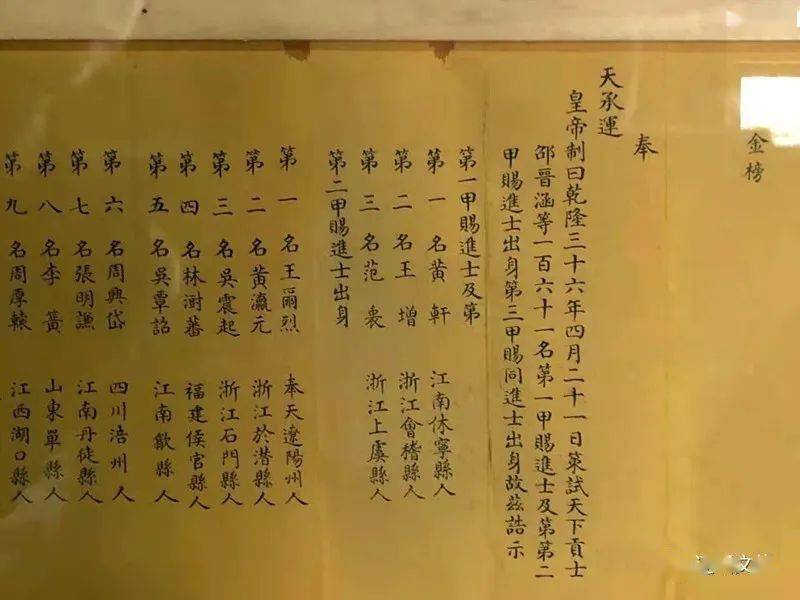 金榜
奉
天承運
皇帝制曰乾隆三十六年四月二十一日策試天下貢士
邵晉涵等一百六十一名第一甲賜進士及第第二
甲賜進士出身第三甲賜同進士出身故茲誥示
第一甲賜進士及第
第一名黃軒 江南休寧縣人
第二名王增 浙江會稽縣人
第三名范衷 浙江上虞縣人
第二甲賜進士出身
第一名王爾烈 奉天遼陽州人
第二名黃瀛元 浙江於潛縣人
第三名吳震起 浙江石門縣人
第四名林澍蕃 福建侯官縣人
第五名吳覃詔 江南歙縣人
第六名周興岱 四川涪州人
第七名張明謙 江南丹徒縣人
第八名李簧 山東單縣人
第九名周厚轅 江西湖口縣人
文